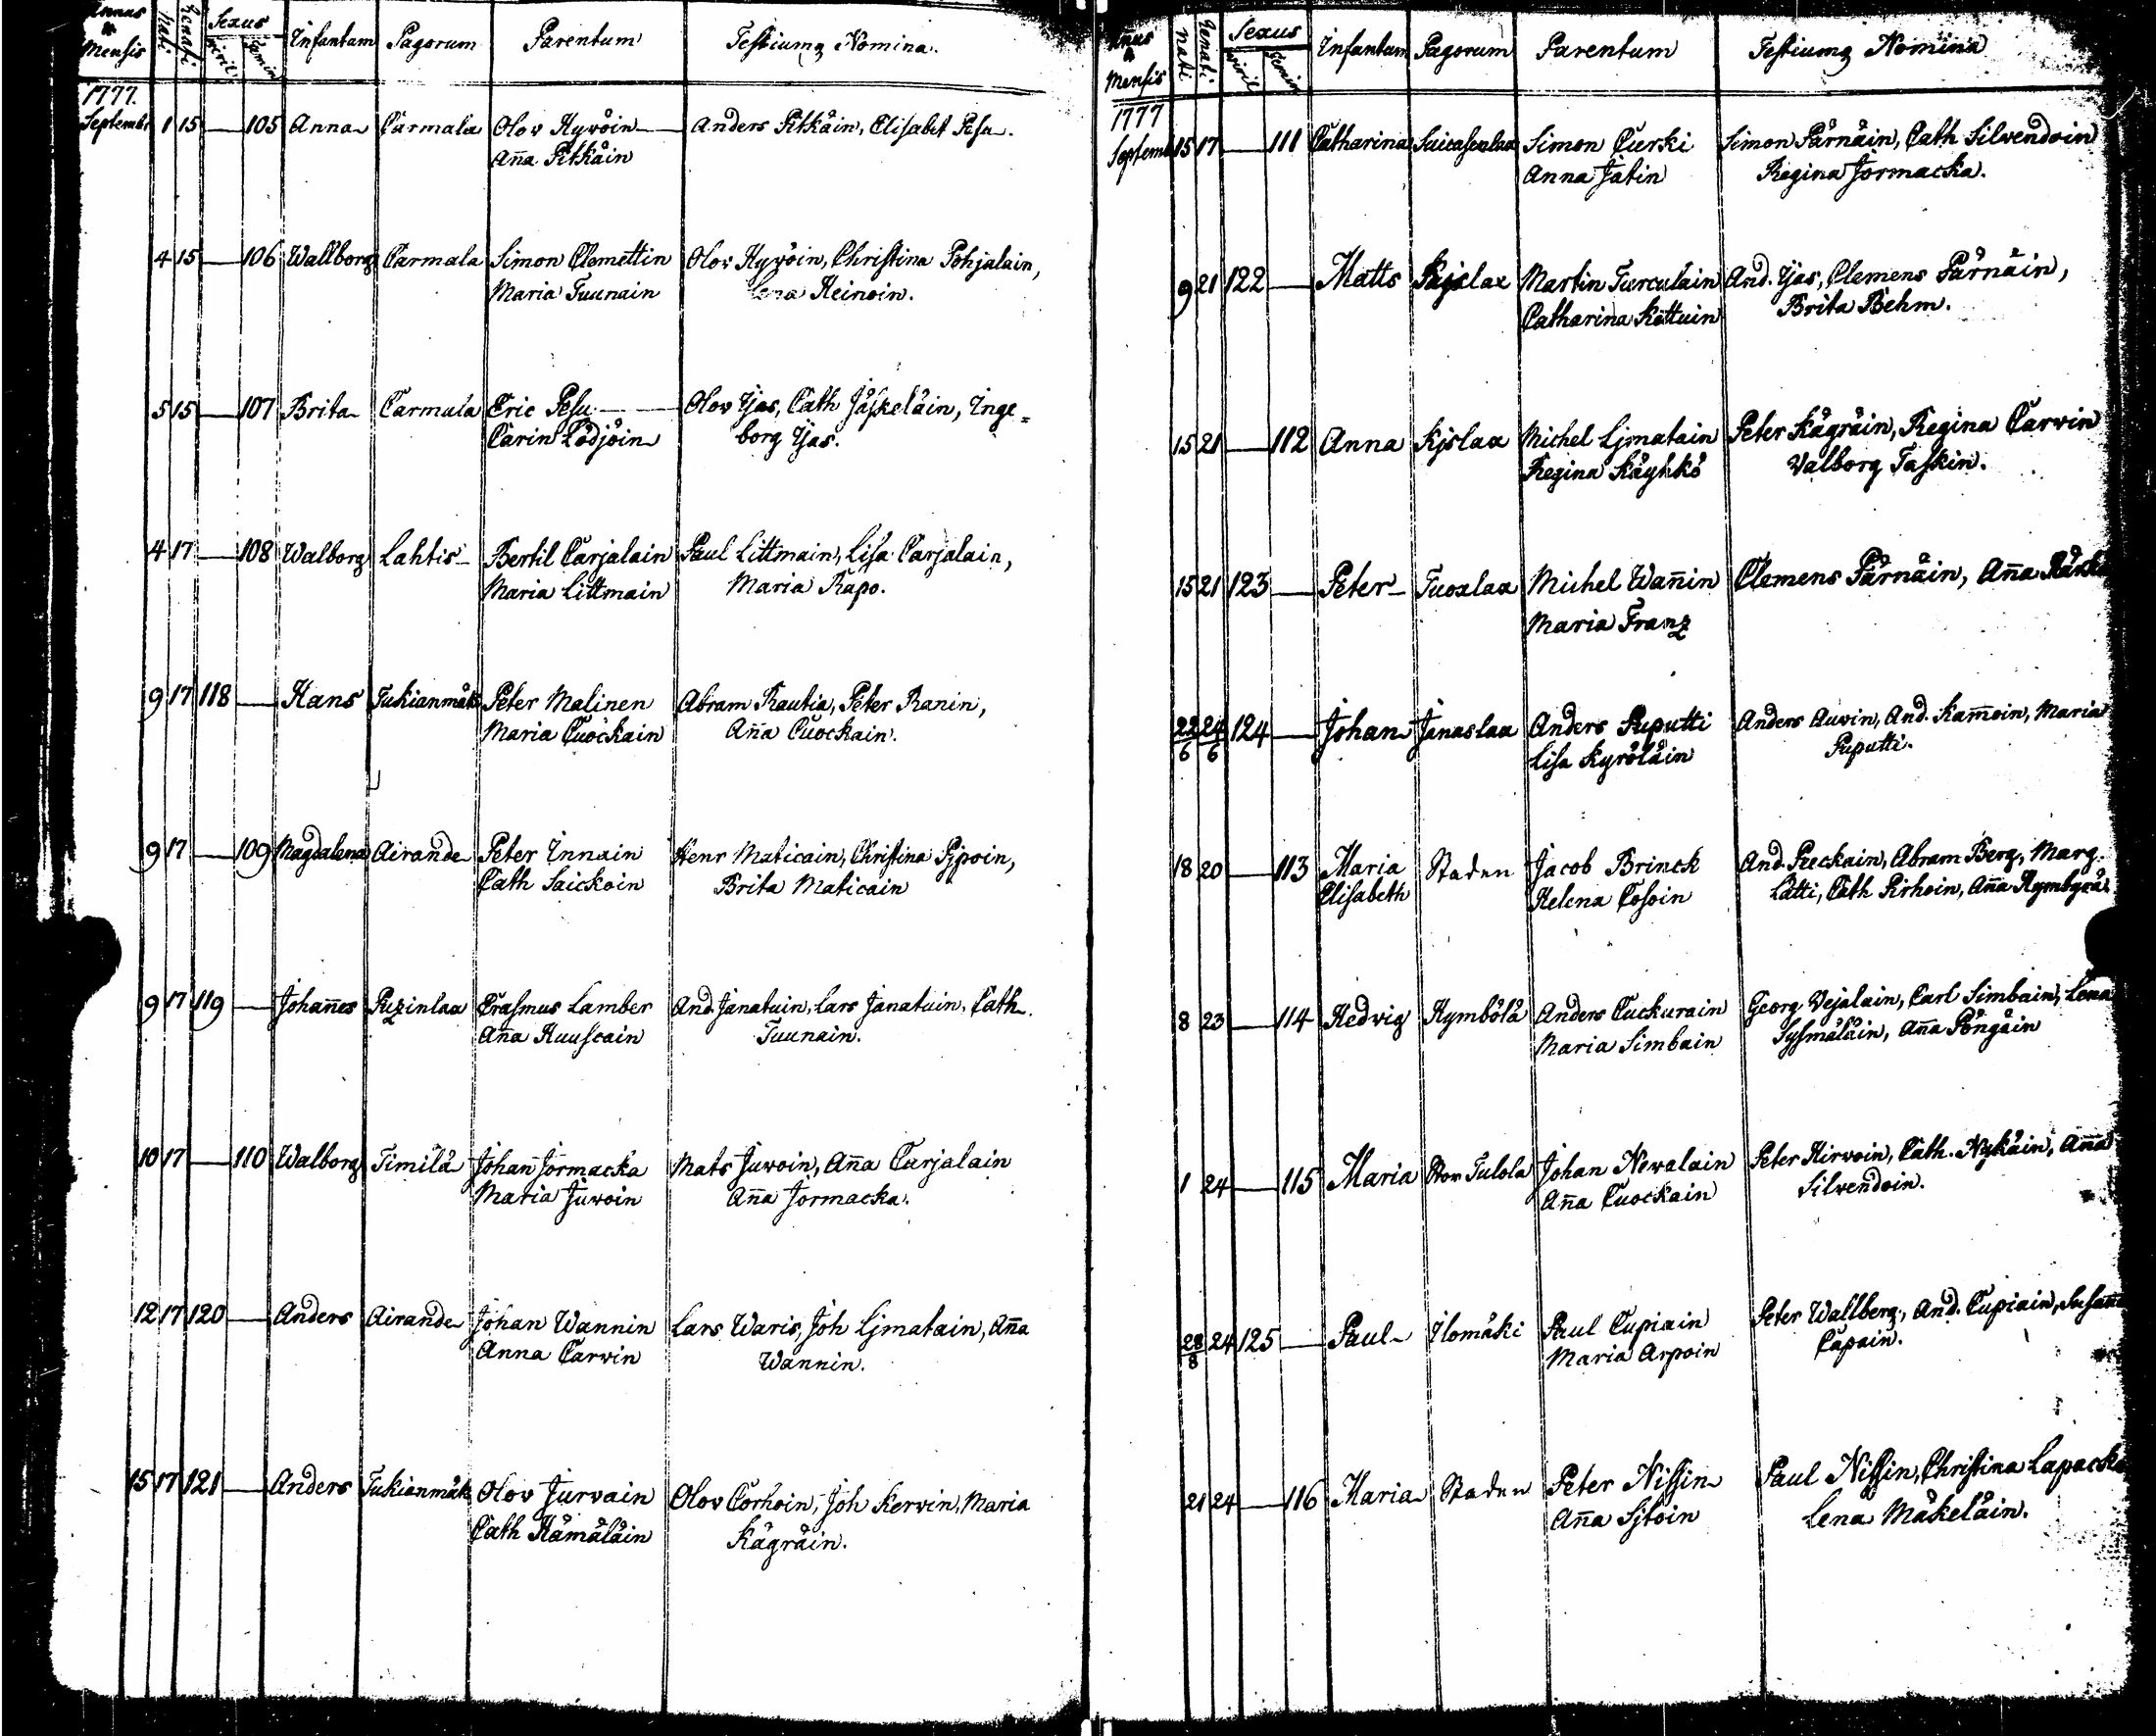 Annus & Mensis Nati Renati Sexus viril femin Infantum Pagorum Parentum Testiumq Nomina.
1777.
Septembr 1 15 — 105 Anna Carmala Olov Hyvöin — Anders Pitkäin, Elisabet Pesu.
Aña Pitkäin
4 15 — 106 Wallborg Carmala Simon Clemettin Olov Hyvöin, Christina Pohjalain,
Maria Tuunain Lena Heinoin.
5 15 — 107 Brita Carmala Eric Pesu — Olov Yjas, Cath Jäskeläin, Inge=
Carin Lödjöin borg Yjas.
4 17 — 108 Walborg Lahtis Bertil Carjalain Paul Littmain, Lisa Carjalain,
Maria Littmain Maria Rapo.
9 17 118 — Hans Tukianmäk Peter Malinen Abram Rautia, Peter Ranin,
Maria Cuockain Aña Cuockain.
9 17 — 109 Magdalena Airande Peter Innain Henr Maticain, Christina Pjpoin,
Cath Saickoin Brita Maticain
9 17 119 — Johañes Puzinlax Erasmus Lamber And Janatuin, Lars Janatuin, Cath.
Aña Huuscain Tuunain.
10 17 — 110 Walborg Timilä Johan Jormacka Mats Juvoin, Aña Carjalain
Maria Juvoin Aña Jormacka.
12 17 120 — Anders Airande Johan Wannin Lars Waris, Joh Ljmatain, Aña
Anna Carvin Wannin.
15 17 121 — Anders Tukianmäk Olov Jurvain Olov Corhoin, Joh Kervin, Maria
Cath Hämäläin Kägräin.
Añus & Mensis Nati Renati Sexus viril femin Infantum Pagorum Parentum Testiumq Nomina
1777
Septemb 15 17 — 111 Catharina Suicasenlax Simon Curki Simon Pärnäin, Cath Silvendoin
Anna Jatin Regina Jormacka.
9 21 122 — Matts Kjslax Martin Turculain And. Yjas, Clemens Pärnäin,
Catharina Kettuin Brita Behm.
15 21 — 112 Anna Kjslax Michel Ljmatain Peter Kägräin, Regina Carvin
Regina Käyhkö Valborg Taskin.
15 21 123 — Peter Tuoxlax Michel Wañin Clemens Pärnäin, Aña
Maria Franz
22/6 24/6 124 — Johan Janaslax Anders Puputti Anders Auvin, And. Kam̃oin, Maria
Lisa Kyröläin Puputti.
18 20 — 113 Maria Staden Jacob Brinck And. Reckain, Abram Berg, Marg.
Elisabeth Helena Cosoin Lätti, Cath Pirhoin, Aña
8 23 — 114 Hedvig Hymbölä Anders Cuckurain Georg Vejalain, Carl Simbain, Lena
Maria Simbain Sysmäläin, Aña Pöngäin
1 24 — 115 Maria Stor Tulola Johan Nevalain Peter Hirvoin, Cath. Nykäin, Aña
Aña Cuockain Silvendoin.
28/8 24 125 — Paul Ilomäki Paul Cupiain Peter Wallberg, And. Cupiain, Susaña
Maria Arpoin Capain.
21 24 — 116 Maria Staden Peter Nissin Paul Nissin, Christina Lapacka
Aña Sjtoin Lena Mäkeläin.